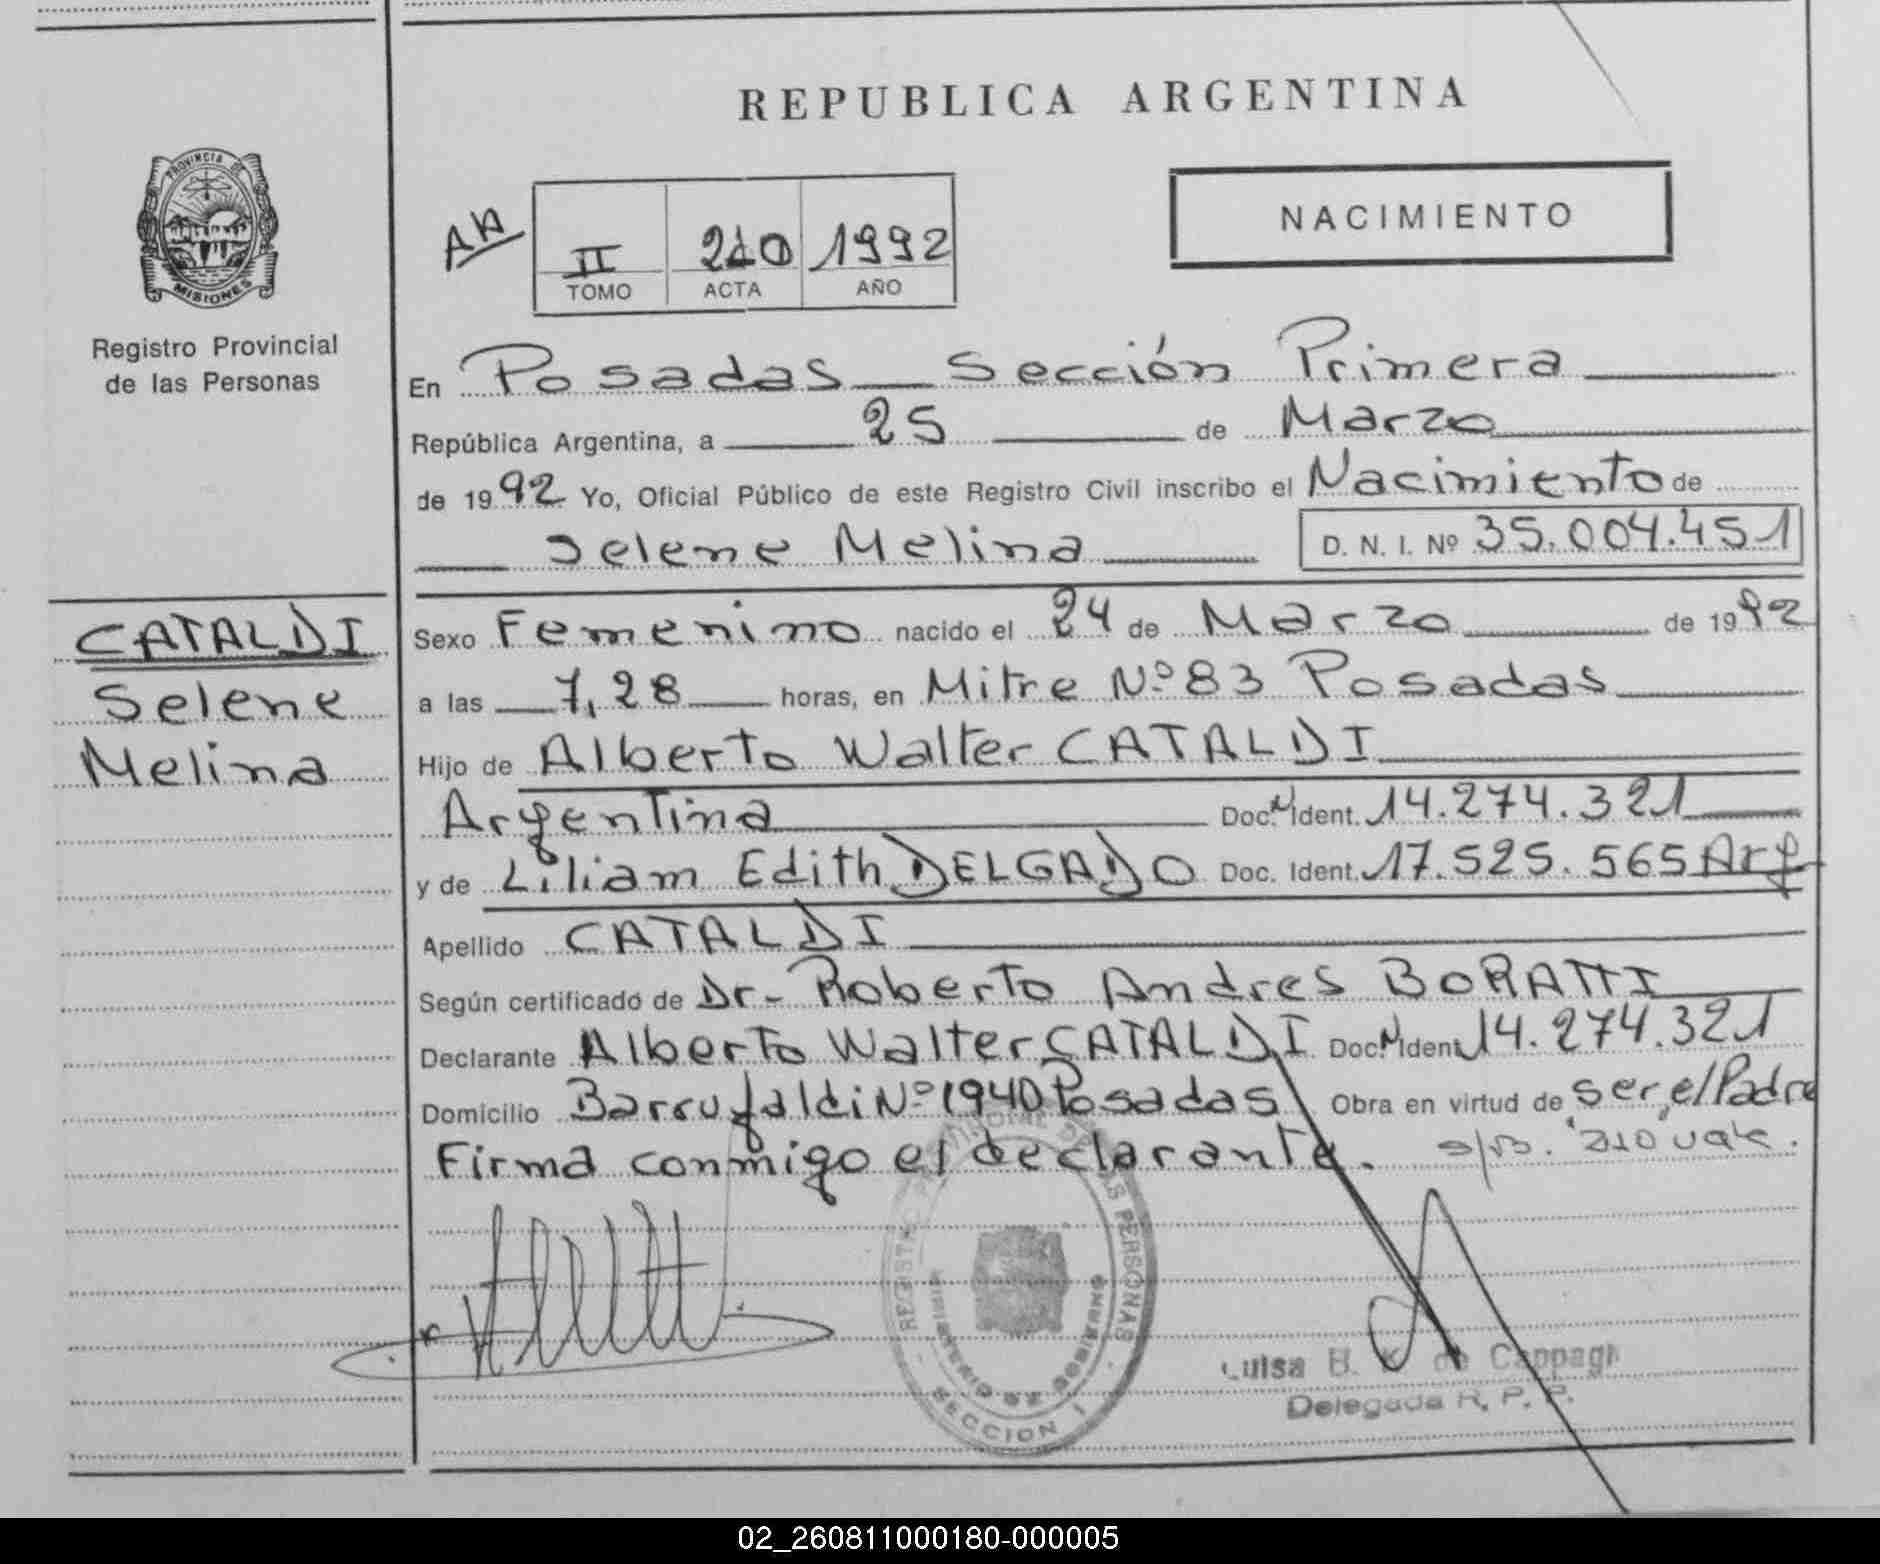 REPUBLICA ARGENTINA
PROVINCIA DE
MISIONES
Registro Provincial
de las Personas
NACIMIENTO
II 210 1992
TOMO ACTA AÑO
En Posadas Sección Primera
República Argentina, a 25 de Marzo
de 1992 Yo, Oficial Público de este Registro Civil inscribo el Nacimiento de
Selene Melina D. N. I. Nº 35.004.451
CATALDI
Selene
Melina
Sexo Femenino nacido el 24 de Marzo de 1992
a las 7,28 horas, en Mitre Nº 83 Posadas
Hijo de Alberto Walter CATALDI
Argentina Doc. N Ident. 14.274.321
y de Liliam Edith DELGADO Doc. Ident. 17.525.565 Arg
Apellido CATALDI
Según certificado de Dr- Roberto Andres BORATTI
Declarante Alberto Walter CATALDI Doc. N Ident 14.274.321
Domicilio Barrufaldi Nº 1940 Posadas Obra en virtud de ser el Padre
Firma conmigo el declarante. s/rs. "210" vale.
REGISTRO PROVINCIAL DE LAS PERSONAS
MINISTERIO DE GOBIERNO
SECCION I
Luisa B. K. de Cappagli
Delegada R. P. P.
02_260811000180-000005